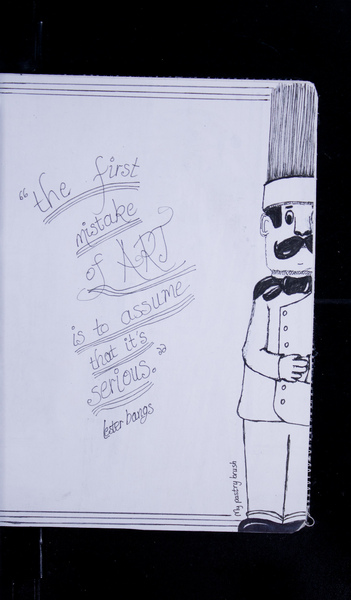 “the first
mistake
of ART
is to assume
that it's
serious.”
lester bangs
My pastry brush